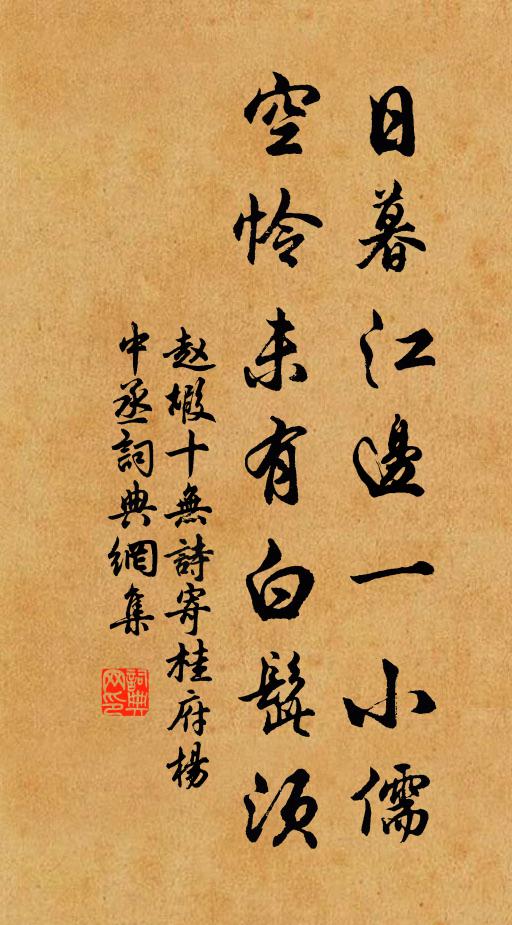 日暮江邊一小儒
空怜未有白髭须
赵嘏十無詩寄桂府楊
中丞詞典網集
詞典
网印